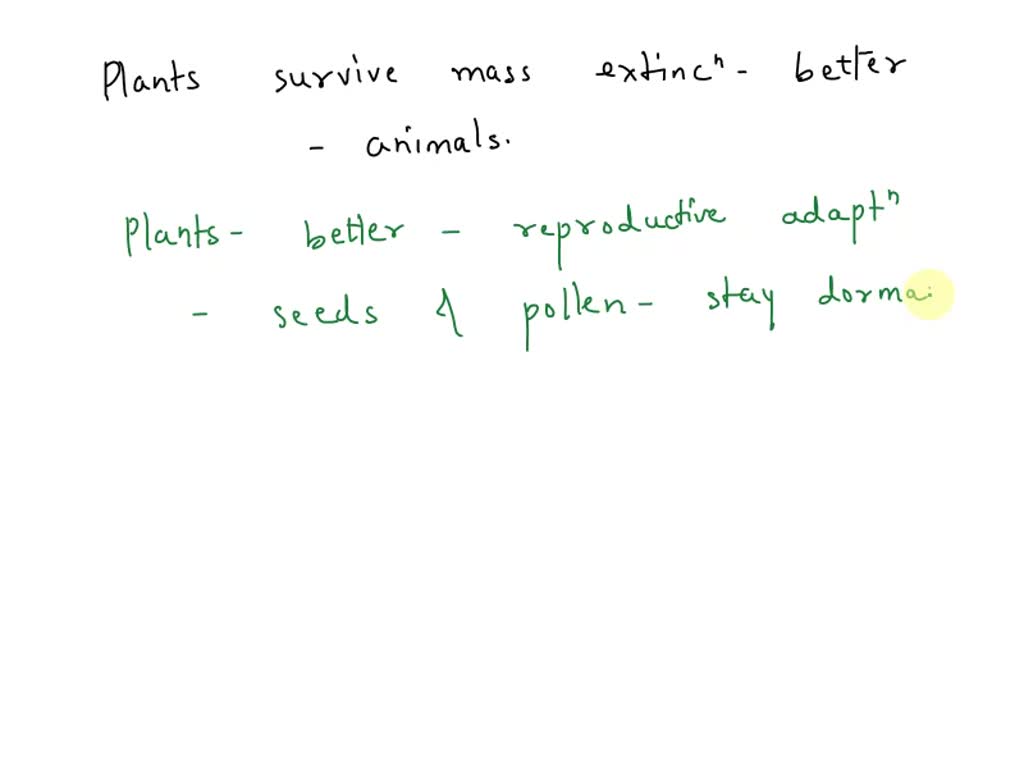 Plants survive mass extincⁿ - better
- animals.
Plants - better - reproductive adaptⁿ
- seeds & pollen - stay dorma